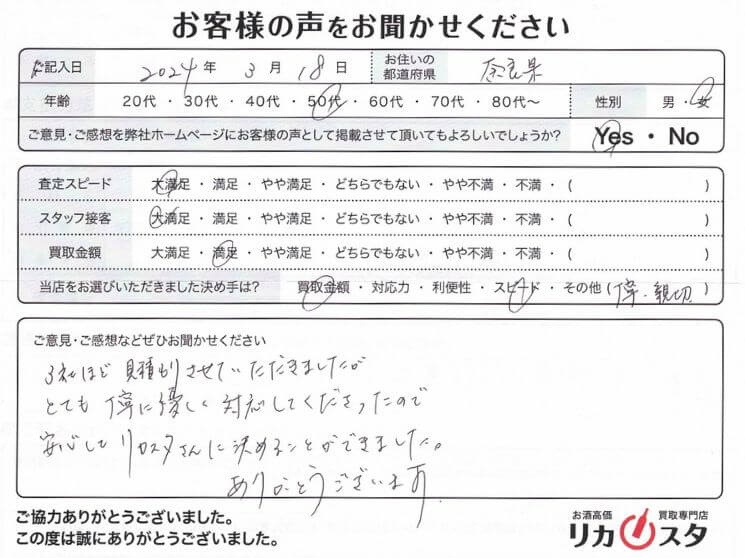 お客様の声をお聞かせください
ご記入日 2024 年 3 月 18 日 お住いの都道府県 奈良県
年齢 20代 ・ 30代 ・ 40代 ・ 50代 ・ 60代 ・ 70代 ・ 80代～ 性別 男 ・ 女
ご意見・ご感想を弊社ホームページにお客様の声として掲載させて頂いてもよろしいでしょうか? Yes ・ No
査定スピード 大満足 ・ 満足 ・ やや満足 ・ どちらでもない ・ やや不満 ・ 不満 ・ ( )
スタッフ接客 大満足 ・ 満足 ・ やや満足 ・ どちらでもない ・ やや不満 ・ 不満 ・ ( )
買取金額 大満足 ・ 満足 ・ やや満足 ・ どちらでもない ・ やや不満 ・ 不満 ・ ( )
当店をお選びいただきました決め手は? 買取金額 ・ 対応力 ・ 利便性 ・ スピード ・ その他 ( 丁寧、親切 )
ご意見・ご感想などぜひお聞かせください
3社ほど見積りさせていただきましたが
とても丁寧に優しく対応してくださったので
安心してリカスタさんに決めることができました。
ありがとうございます
ご協力ありがとうございました。
この度は誠にありがとうございました。
お酒高価 買取専門店
リカスタ